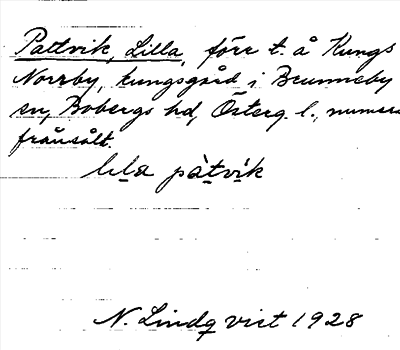 Pattvik, Lilla, förr t. å Kungs
Norrby, kungsgård i Brunneby
sn, Bobergs hd, Österg. l., numera
frånsålt.
lila pàtvik
N. Lindqvist 1928